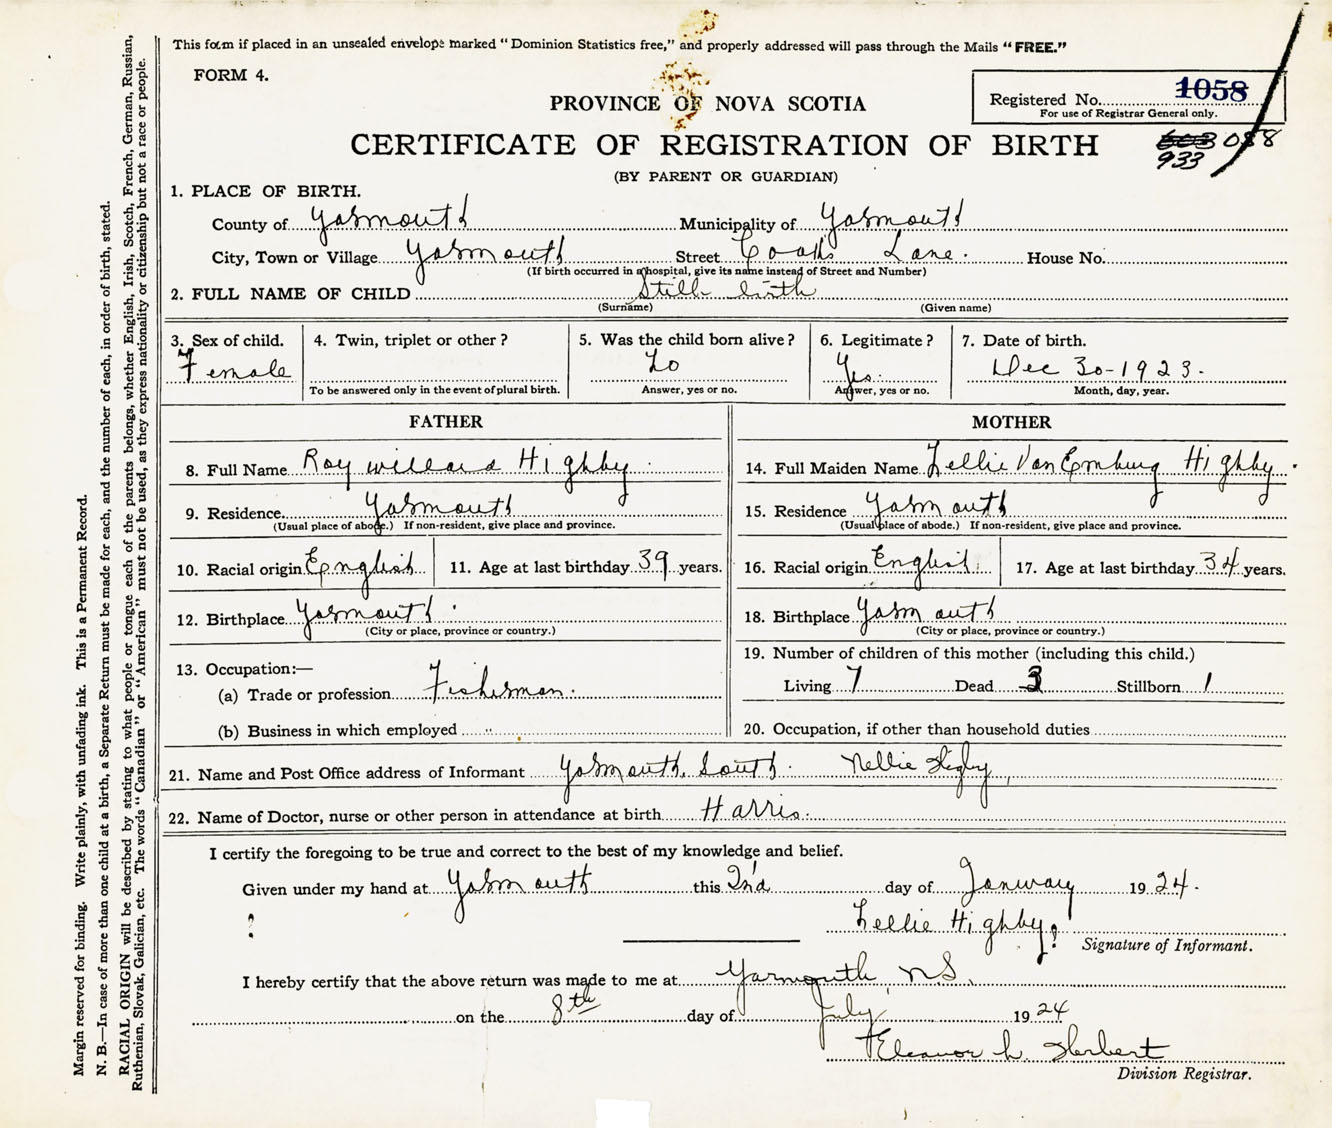 This form if placed in an unsealed envelope marked "Dominion Statistics free," and properly addressed will pass through the Mails "FREE."
FORM 4.
Registered No. 1058
For use of Registrar General only.
PROVINCE OF NOVA SCOTIA
CERTIFICATE OF REGISTRATION OF BIRTH
933
(BY PARENT OR GUARDIAN)
1. PLACE OF BIRTH.
County of Yarmouth Municipality of Yarmouth
City, Town or Village Yarmouth Street Lane. House No.
(If birth occurred in a hospital, give its name instead of Street and Number)
2. FULL NAME OF CHILD Still birth
(Surname) (Given name)
3. Sex of child. 4. Twin, triplet or other? 5. Was the child born alive? 6. Legitimate? 7. Date of birth.
Female No Yes. Dec 30-1923.
To be answered only in the event of plural birth. Answer, yes or no. Answer, yes or no. Month, day, year.
FATHER MOTHER
8. Full Name Roy Willard Highby 14. Full Maiden Name Nellie Van Emburg Highby
9. Residence. Yarmouth 15. Residence Yarmouth
(Usual place of abode.) If non-resident, give place and province. (Usual place of abode.) If non-resident, give place and province.
10. Racial origin English 11. Age at last birthday 39 years. 16. Racial origin English 17. Age at last birthday 34 years.
12. Birthplace Yarmouth 18. Birthplace Yarmouth
(City or place, province or country.) (City or place, province or country.)
13. Occupation:— 19. Number of children of this mother (including this child.)
(a) Trade or profession Fisherman. Living 7 Dead 3 Stillborn 1
(b) Business in which employed 20. Occupation, if other than household duties
21. Name and Post Office address of Informant Yarmouth, South. Nellie Higby,
22. Name of Doctor, nurse or other person in attendance at birth Harris.
I certify the foregoing to be true and correct to the best of my knowledge and belief.
Given under my hand at Yarmouth this 2nd day of January 1924.
Nellie Highby
Signature of Informant.
I hereby certify that the above return was made to me at Yarmouth, N.S.
on the 8th day of July 1924
Eleanor L. Herbert
Division Registrar.
Margin reserved for binding. Write plainly, with unfading ink. This is a Permanent Record.
N. B.—In case of more than one child at a birth, a Separate Return must be made for each, and the number of each, in order of birth, stated.
RACIAL ORIGIN will be described by stating to what people or tongue each of the parents belongs, whether English, Irish, Scotch, French, German, Russian,
Ruthenian, Slovak, Galician, etc. The words "Canadian" or "American" must not be used, as they express nationality or citizenship but not a race or people.